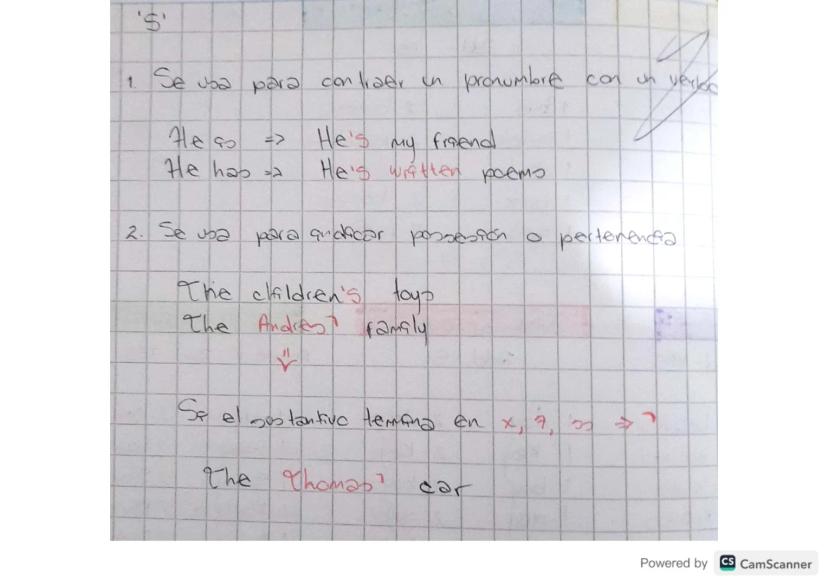 'S'
1. Se usa para contraer un pronumbre con un verbo
He is => He's my friend
He has => He's written poems
2. Se usa para indicar possesión o pertenencia
The children's toys
The Andres' family
Si el sostantivo termina en x, z, s => '
The Thomas' car
Powered by CS CamScanner